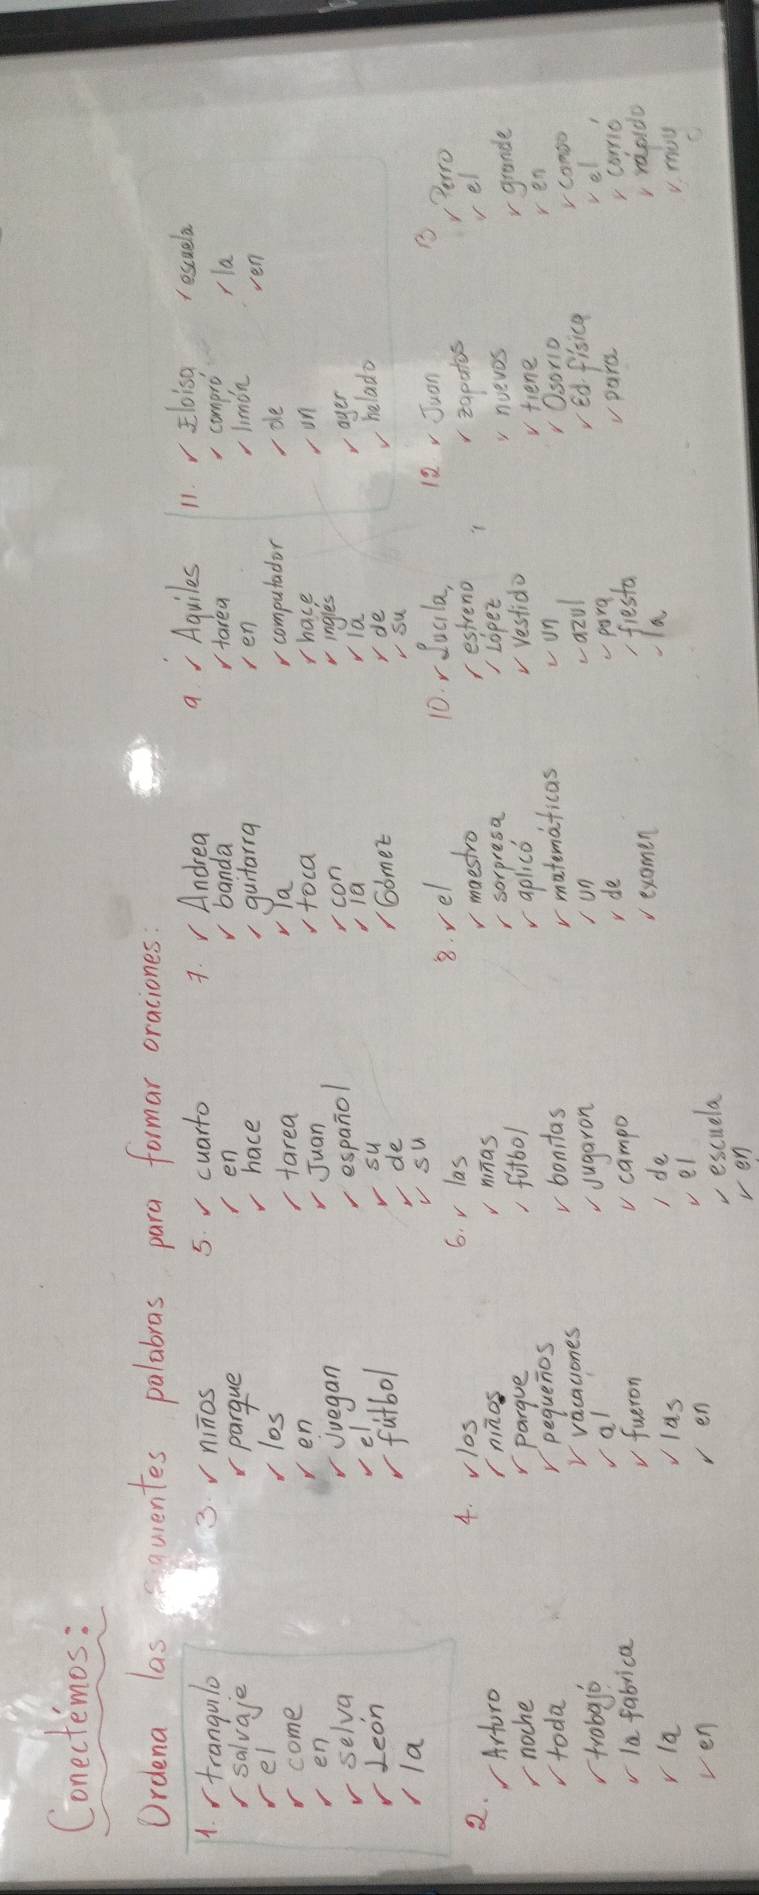 Conectémos:
Ordena las siguientes palabras para formar oraciones:
1. tranquilo
salvaje
el
come
en
selva
León
la
2. Arturo
noche
toda
trabajó
la fabrica
la
en
3. niños
parque
los
en
juegan
el
fútbol
4. los
niños
parque
pequeños
vacaciones
al
fueron
las
en
5. cuarto
en
hace
tarea
Juan
español
su
de
su
6. las
niñas
fútbol
bonitas
jugaron
campo
de
el
escuela
en
7. Andrea
banda
guitarra
la
toca
con
la
Gómez
8. el
maestro
sorpresa
aplicó
matemáticas
un
de
examen
9. Aquiles
tarea
en
computador
hace
inglés
la
de
su
10. Lucila,
estreno
López
vestido
un
azul
para
fiesta
la
11. Eloisa
compró
limón
de
un
ayer
helado
escuela
la
en
12. Juan
zapatos
nuevos
tiene
Osorio
Ed. física
para
13 Perro
el
grande
en
campo
el
corrió
rápido
muy